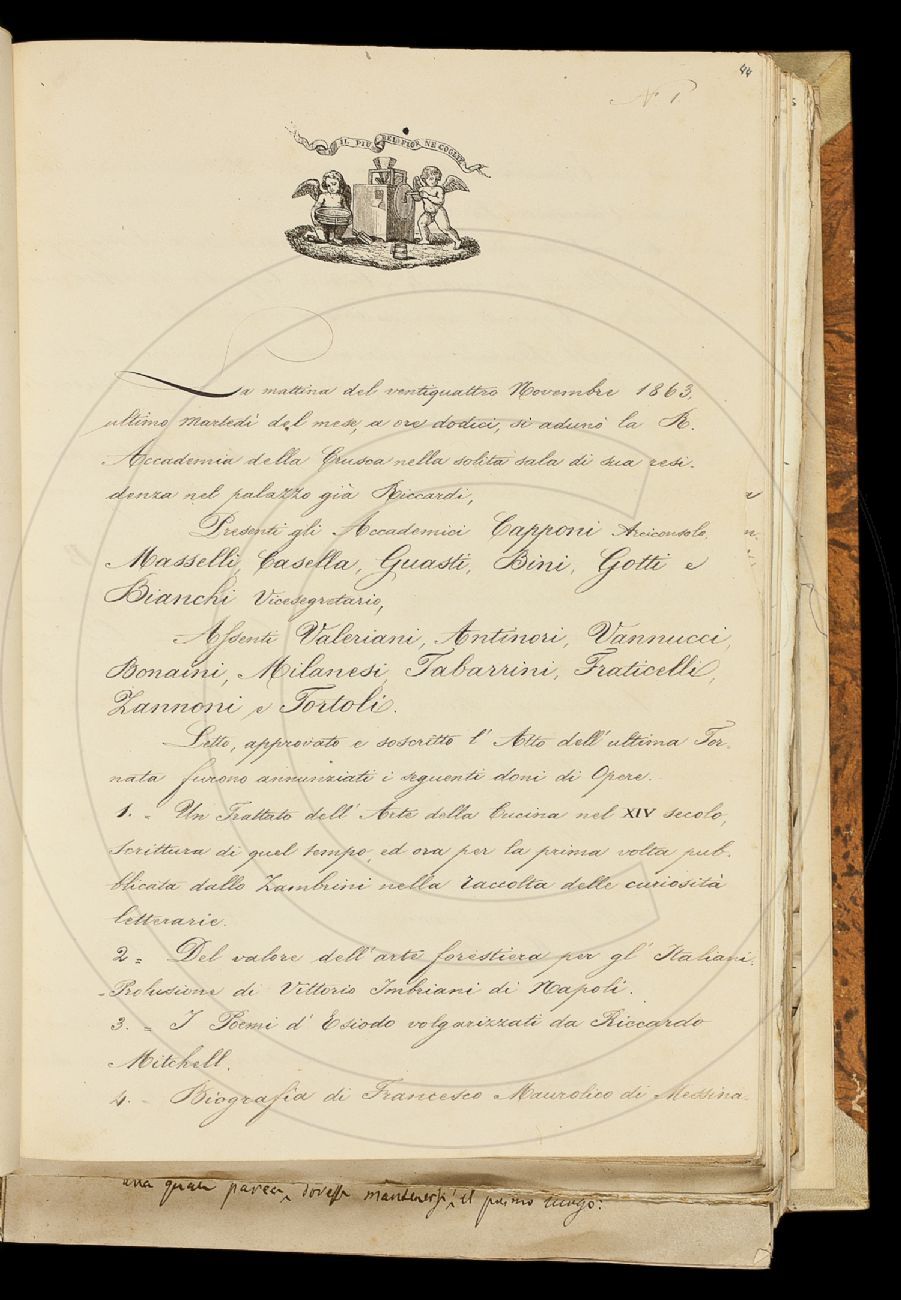 44
N. 1
IL PIÙ BEL FIOR NE COGLIE
La mattina del ventiquattro Novembre 1863.
ultimo Martedì del mese, a ore dodici, si adunò la R.
Accademia della Crusca nella solita sala di sua resi-
denza nel palazzo già Riccardi,
Presenti gli Accademici Capponi Arciconsolo,
Masselli, Casella, Guasti, Bini, Gotti e
Bianchi Vicesegretario,
Assenti Valeriani, Antinori, Vannucci,
Bonaini, Milanesi, Tabarrini, Fraticelli,
Zannoni e Tortoli.
Letto, approvato e soscritto l'Atto dell'ultima Tor-
nata furono annunziati i seguenti doni di Opere.
1. = Un Trattato dell'Arte della Cucina nel XIV secolo,
scrittura di quel tempo, ed ora per la prima volta pub-
blicata dallo Zambrini nella raccolta delle curiosità
letterarie.
2 = Del valore dell'arte forestiera per gl'Italiani.
Prolusione di Vittorio Imbriani di Napoli.
3. = I Poemi d'Esiodo volgarizzati da Riccardo
Mitchell.
4. = Biografia di Francesco Maurolico di Messina.
parea dovesse mantenersi il primo luogo: